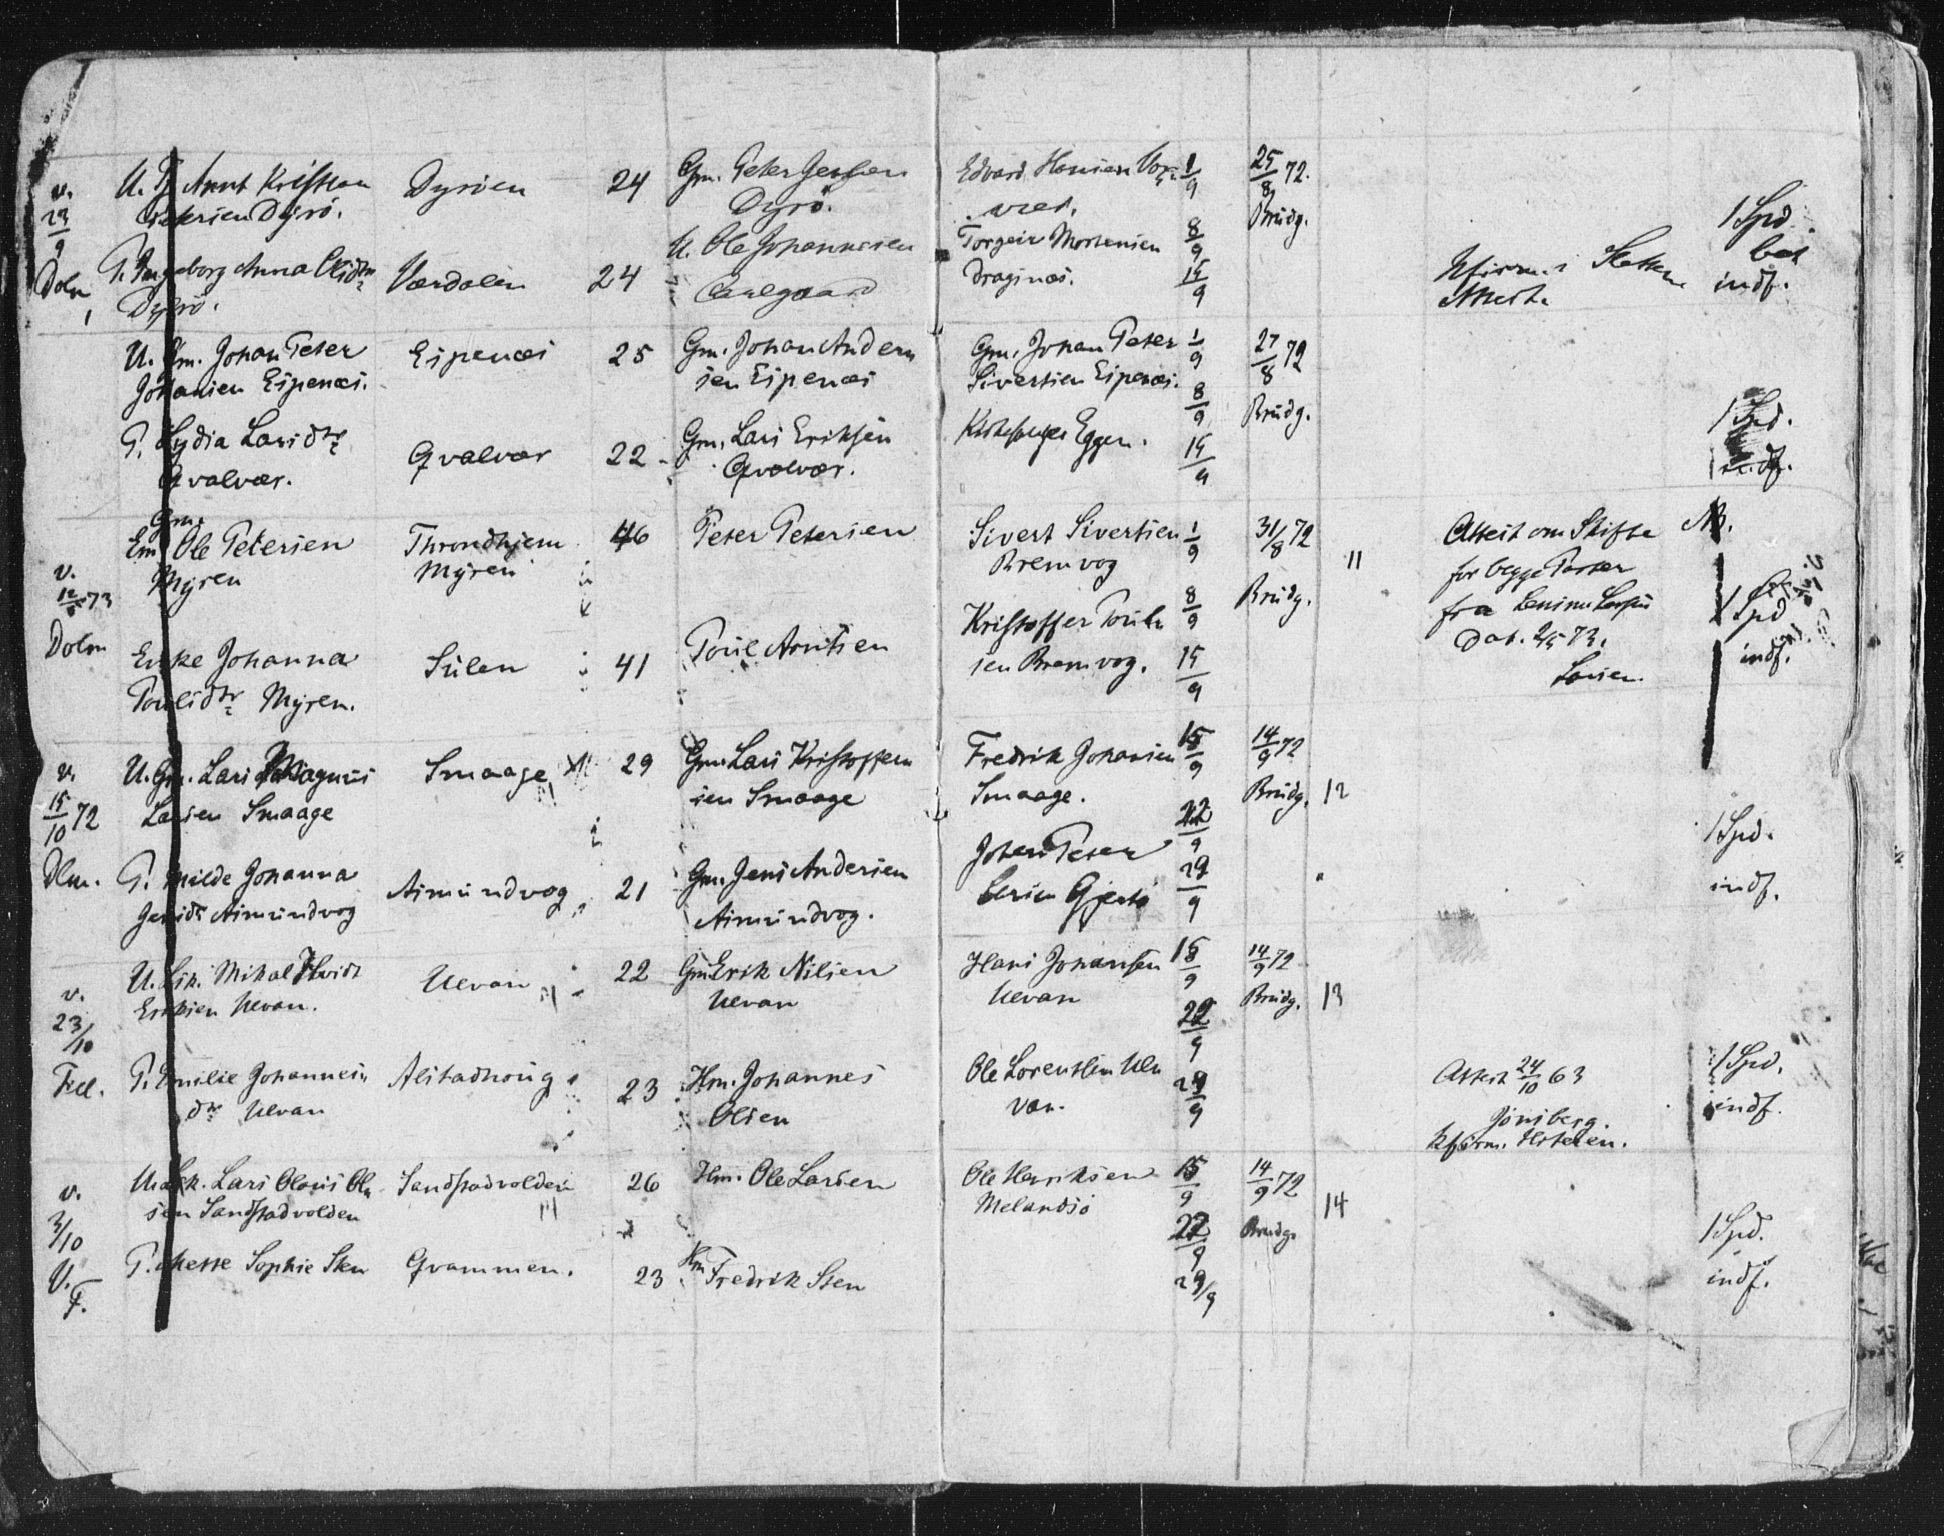 v.
23
9
Dolm
U. Tj. Arnt Kristian
Petersen Dyrö.
P. Ingeborg Anna Olsdtr
Dyrö.
Dyröen
Værdalen
24
24
Gm. Peter Jensen
Dyrö.
U. Ole Johannesen
Edvard Hansen
Torgeir Mortensen
Draginæs.
1/9
8/9
15/9
25/8 72.
Brudg.
Attest.
1 Spd.
bet
indf.
U. Gm. Johan Peter
Johansen Espenæs.
P. Lydia Larsdtr
Qvalvær.
Espenæs
Qvalvær
25
22
Gm. Johan Ander
sen Espenæs
Gm. Lars Eriksen
Qvalvær.
Gm. Johan Peter
Sivertsen Espenæs.
Kirkesanger Eggen.
1/9
8/9
15/9
27/8 72
Brudg.
1 Spd.
indf.
v.
12/5 73
Dolm
Gm.
Em. Ole Petersen
Myren
Enke Johanna
Poulsdtr Myren.
Throndhjem
Myren
Sulen
46
41
Peter Petersen
Poul Arntsen
Sivert Sivertsen
Bremvog
Kristoffer Pouls
sen Bremvog.
1/9
8/9
15/9
31/8 72
Brudg.
11
Attest om Skifte
for begge Parter
fra
Dat. 2/5 73.
Larsen.
NB.
1 Spd
indf.
v.
15/10 72
Dlm.
U. Gm. Lars Magnus
Larsen Smaage
P. Milde Johanna
Jensdtr Aimundvog
Smaage
Aimundvog
29
21
Gm. Lars Kristoffer
sen Smaage
Gm. Jens Andersen
Aimundvog.
Fredrik Johansen
Smaage.
Johan Peter
15/9
22/9
29/9
14/9 72
Brudg.
12
1 Spd.
indf.
v.
23/10
Fil.
U. Fisk. Mikal Hvidt
Eriksen Ulvan.
P. Emilie Johannes
dtr Ulvan
Ulvan
Alstadhoug
22
23
Gm. Erik Nilsen
Ulvan
Hm. Johannes
Olsen
Hans Johansen
Ulvan
Ole Lorentsen Ul
van.
15/9
22/9
29/9
14/9 72
Brudg.
13
Attest 24/10 63
Jönsberg.
Kfirm. Hitteren.
1 Spd.
indf.
v.
3/10
U.
F.
U. Fisk. Lars Olaus Ol
sen Sandstadvolden
P. Mette Sophie Sten
Sandstadvolden
Qvammen.
26
23
Hm. Ole Larsen
Hm
Fredrik Sten
Ole Henriksen
Melandsö
15/9
22/9
29/9
14/9 72
Brudg.
14
1 Spd.
indf.